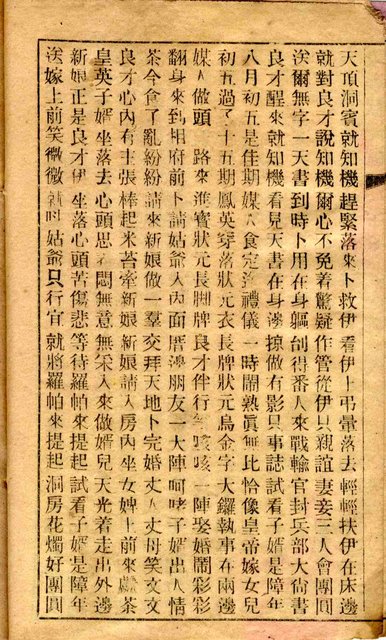 天頂洞賓就知機趕緊落來卜救伊看伊上弔暈落去輕輕扶伊在床邊
就對良才說知機爾心不免着驚疑作管從伊只親誼妻妾三人會團圓
送爾無字一天書到時卜用在身軀刣得番人來戰輸官封兵部大尙書
良才醒來就知機看見天書在身邊掠做有影只事誌試看子婿是障年
八月初五是佳期媒人食定淮禮儀一時鬧熟眞無比恰像皇帝嫁女兒
初五過了十五期鳳英穿落狀元衣長牌狀元烏金字大鑼執事在兩邊
媒人做頭 路來淮賓狀元長脚牌良才伴行 咳咳一陣娶婚鬧彩彩
翻身來到相府前卜請姑爺入內面厝鴻朋友一大陣呵咾子婿出人情
茶今食了亂紛紛請來新娘做一羣交拜天地卜完婚丈人丈母笑文文
良才心內有主張棒起米苔牽新娘新娘請入房內坐女婢上前來獻茶
皇英子婿坐落去心頭思 悶無意無采入來做婿兒天光着走出外邊
新娘正是良才伊坐落心頭苦傷悲等待羅帕來提起試看子婿是障年
送嫁上前笑微微就叫姑爺只行宜就將羅帕來提起洞房花燭好團圓